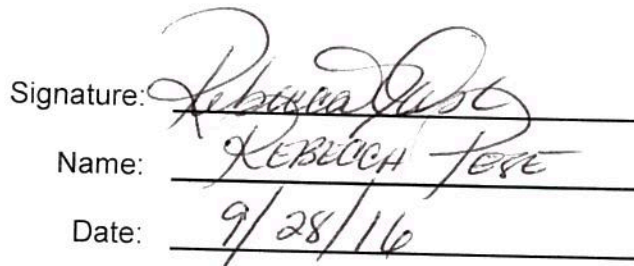 Signature: Rebecca
Name: REBECCA
Date: 9/28/16